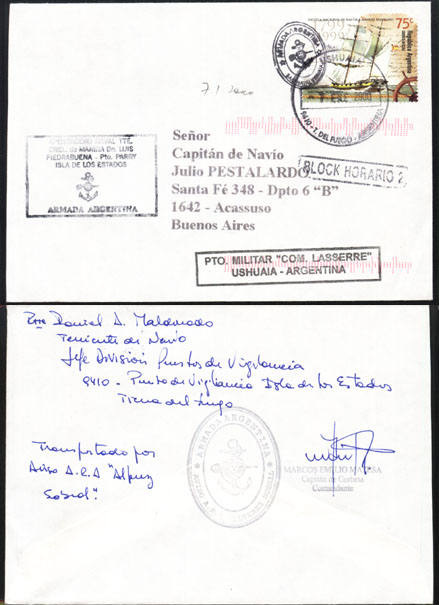 ESCUELA NACIONAL DE NAUTICA
75c
República Argentina
1799
1999
ARMADA ARGENTINA
USHUAIA
2000
9410 - T. DEL FUEGO - ARGENTINA
APOSTADERO NAVAL YTE.
CNEL. de MARINA Dn. LUIS
PIEDRABUENA - Pto. PARRY
ISLA DE LOS ESTADOS
ARMADA ARGENTINA
Señor
Capitán de Navío
Julio PESTALARDO
Santa Fé 348 - Dpto 6 “B”
1642 - Acassuso
Buenos Aires
BLOCK HORARIO 2
PTO. MILITAR "COM. LASSERRE"
USHUAIA - ARGENTINA
Rte Daniel A. Maldonado
Teniente de Navío
Jefe División Puestos de Vigilancia
9410 - Puesto de Vigilancia Isla de los Estados
Tierra del Fuego
Transportado por
Aviso A.R.A "Alferez
Sobral".
ARMADA ARGENTINA
MARCOS EMILIO
Capitán de Corbeta
Comandante